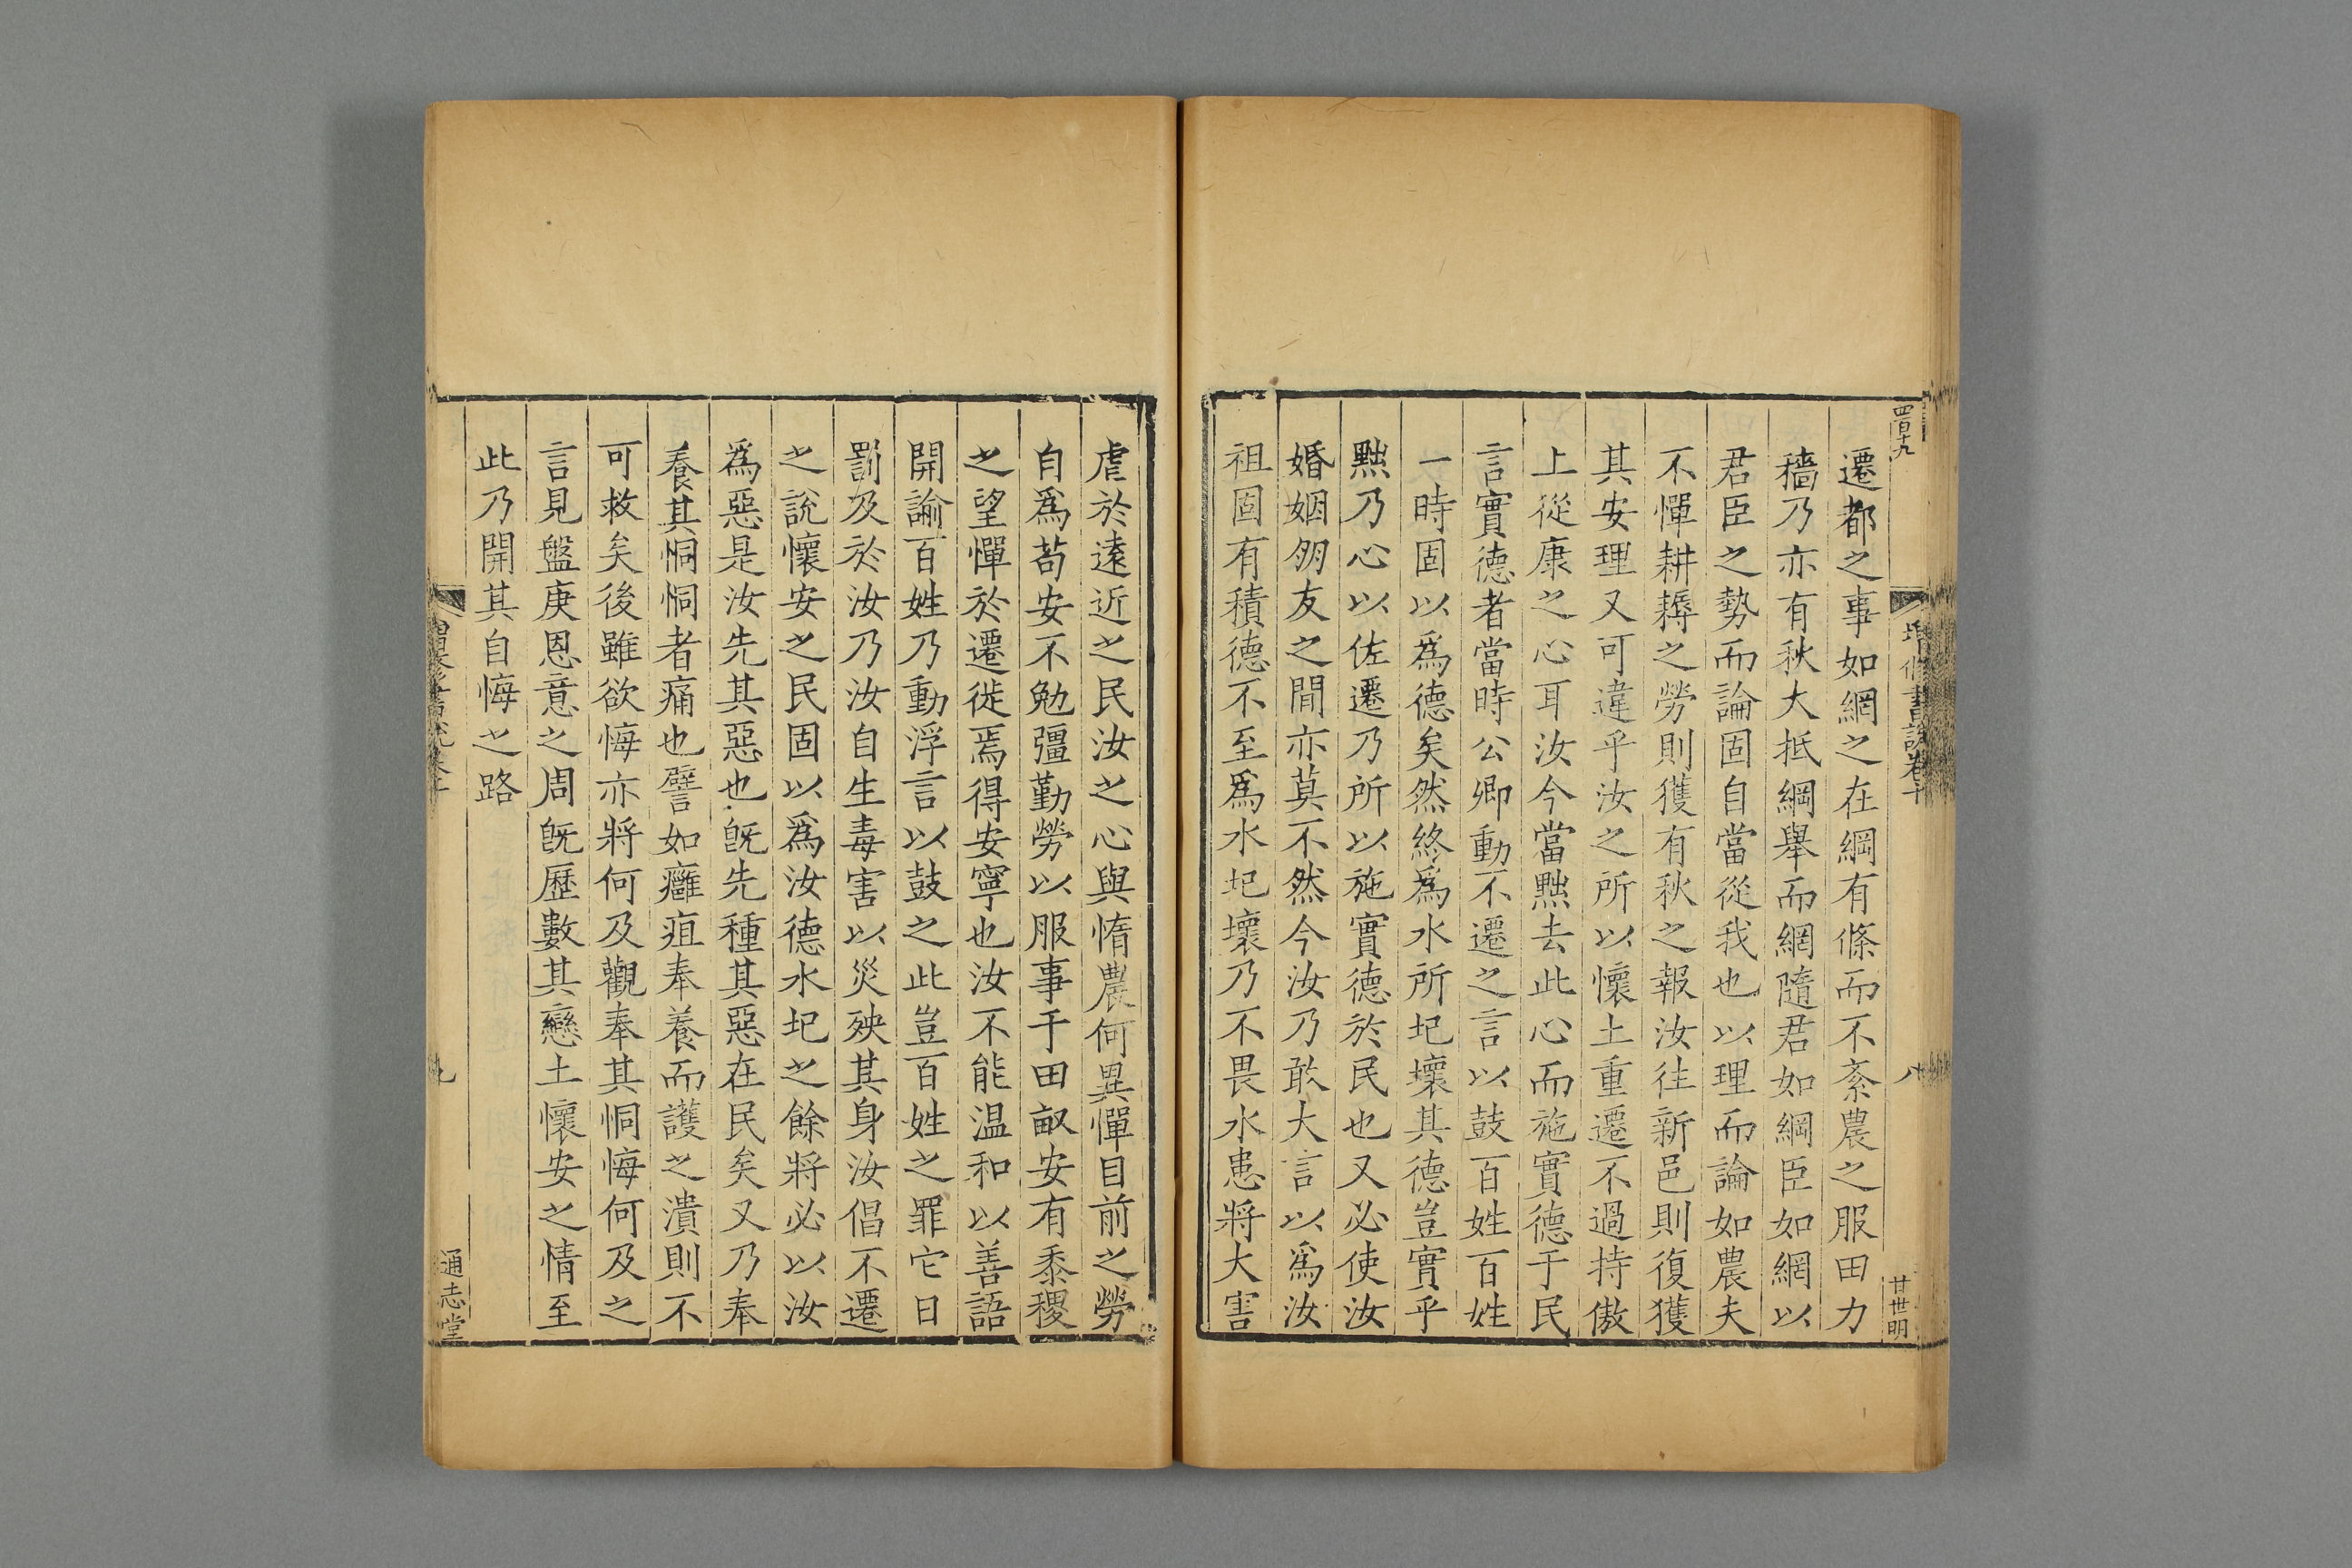 四百十九
甘世明
遷都之事如網之在綱有條而不紊農之服田力
穡乃亦有秋大抵綱舉而網隨君如綱臣如網以
君臣之勢而論固自當從我也以理而論如農夫
不憚耕耨之勞則獲有秋之報汝徃新邑則復獲
其安理又可違乎汝之所以懷土重遷不過持傲
上從康之心耳汝今當黜去此心而施實德于民
言實德者當時公卿動不遷之言以鼓百姓百姓
一時固以爲德矣然終爲水所圮壞其德豈實乎
黜乃心以佐遷乃所以施實德於民也又必使汝
婚姻朋友之間亦莫不然今汝乃敢大言以爲汝
祖固有積德不至爲水圮壞乃不畏水患將大害
虐於遠近之民汝之心與惰農何異憚目前之勞
自爲苟安不勉彊勤勞以服事于田畝安有黍稷
之望憚於遷徙焉得安寧也汝不能温和以善語
開諭百姓乃動浮言以鼓之此豈百姓之罪它日
罰及於汝乃汝自生毒害以災殃其身汝倡不遷
之說懷安之民固以爲汝德水圮之餘將必以汝
爲惡是汝先其惡也旣先種其惡在民矣又乃奉
養其恫恫者痛也譬如癰疽奉養而護之潰則不
可救矣後雖欲悔亦將何及觀奉其恫悔何及之
言見盤庚恩意之周旣歷數其戀土懷安之情至
此乃開其自悔之路
通志堂